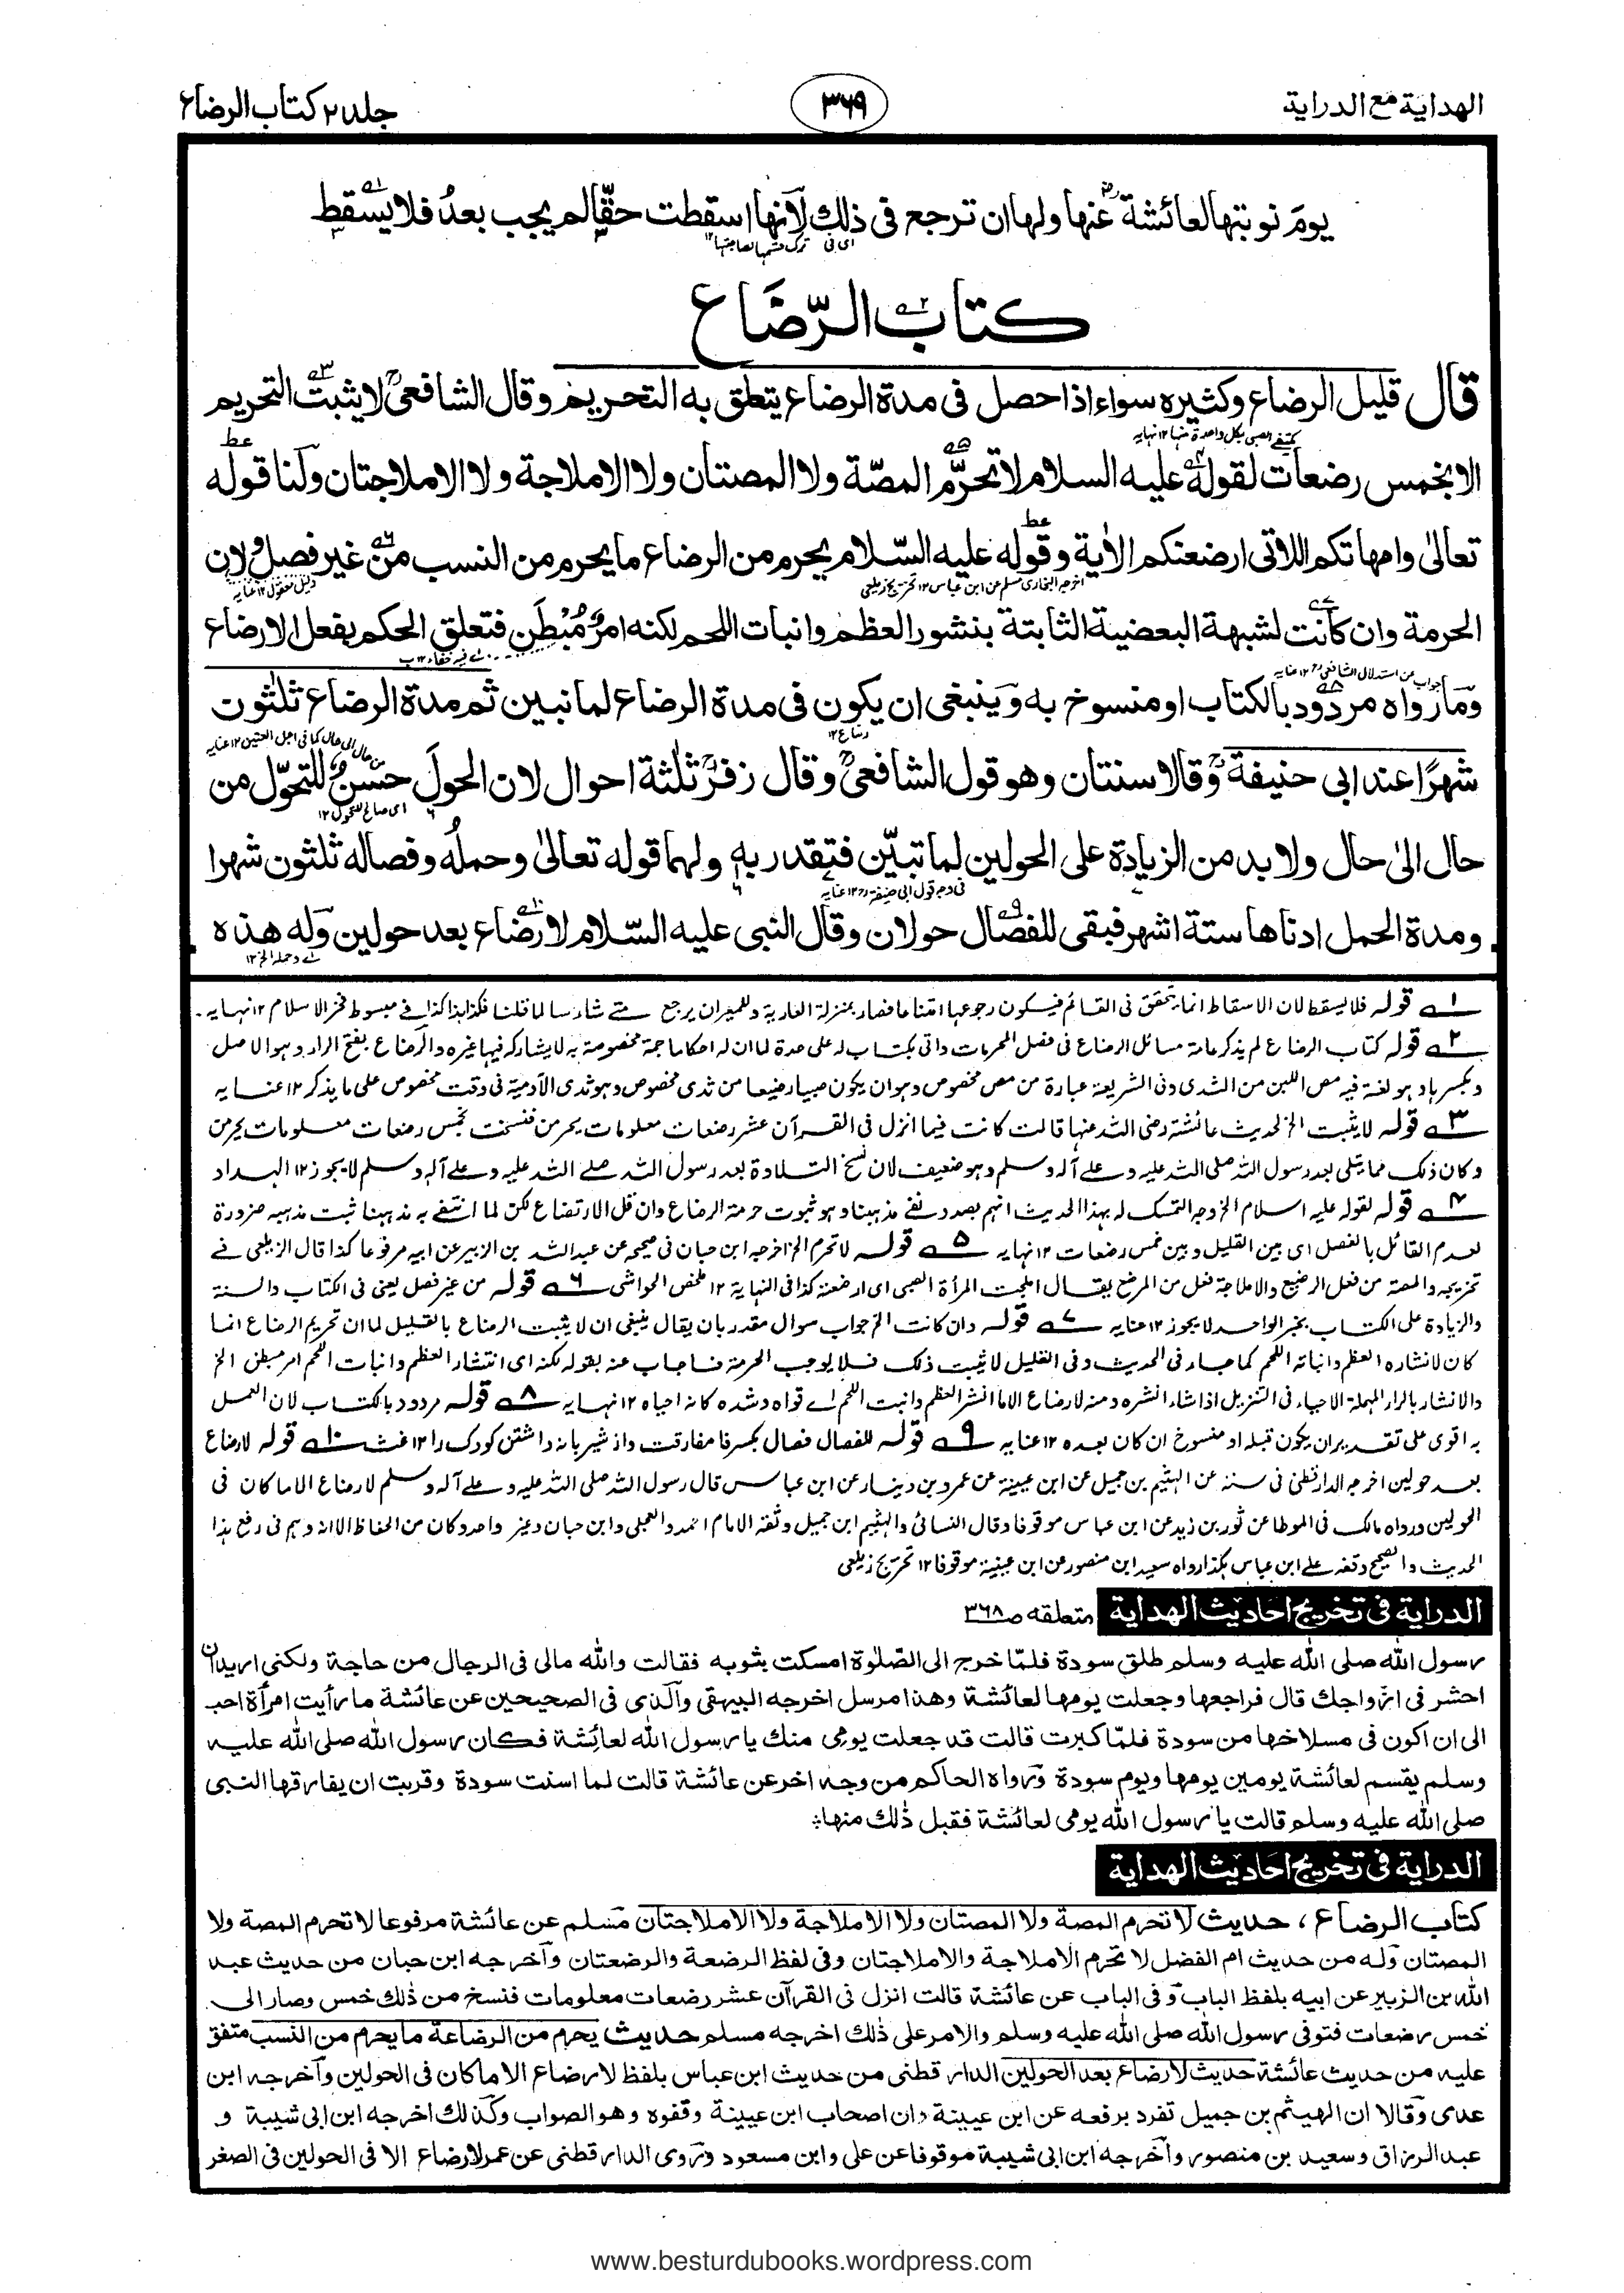 الهداية مع الدراية
٣٦٩
جلد ٢ كتاب الرضاع
يوم نوبتها لعائشة رض عنها ولها ان ترجع فى ذلك لانها اسقطت حقًّا لم يجب بعدُ فلا يسقط
اى فى ترك قسمها لصاحبتها ١٢
كتاب الرّضَاع
قال قليل الرضاع وكثيره سواء اذا حصل فى مدة الرضاع يتعلق به التحريم وقال الشافعى لا يثبت التحريم
يكتفى الصبى بكل واحدة منها ١٢ نهايه
الا بخمس رضعات لقوله عليه السلام لا تحرّم المصّة ولا المصتان ولا الاملاجة ولا الاملاجتان ولنا قوله
تعالىٰ وامهاتكم اللاتى ارضعنكم الاٰية وقوله عليه السّلام يحرم من الرضاع ما يحرم من النسب من غير فصل ولان
اخرجه البخارى ومسلم عن ابن عباس ١٢ تخريج زيلعى
دليل معقول ١٢ عنايه
الحرمة وان كانت لشبهة البعضية الثابتة بنشور العظم وانبات اللحم لكنه امرٌ مُبْطَن فتعلق الحكم بفعل الارضاع
اے فيه خفاء ١٢ ب
جواب عن استدلال الشافعى رح ١٢ عنايه
وما رواه مردود بالكتاب او منسوخ به وينبغى ان يكون فى مدة الرضاع لما نبين ثم مدة الرضاع ثلٰثون
رضاع ١٢
من حال الى حال كما فى اجل العنين ١٢ عنايه
شهرًا عند ابى حنيفة وقالا سنتان وهو قول الشافعى وقال زفر ثلٰثة احوال لان الحول حسنٌ للتحوّل من
اى صالح للتحول ١٢
حال الىٰ حال ولا بد من الزيادة على الحولين لما تبيّن فتقدر به ولهما قوله تعالىٰ وحملُه وفصاله ثلثون شهرا
فى وجه قول ابى حنيفة رح ١٢ عنايه
ومدة الحمل ادناها ستة اشهر فبقى للفصال حولان وقال النبى عليه السّلام لا رضاع بعد حولين وله هذه
اے وحمله الخ ١٢
١ قوله فلا يسقط لان الاسقاط انما يتحقق فى القائم فيكون رجوعها امتناعا فصار بمنزلة العارية وللمعير ان يرجع متے شاء رسا لما قلنا فكذا هذا كذا فے مبسوط فخر الاسلام ١٢ نهايه
٢ قوله كتاب الرضاع لم يذكر عامة مسائل الرضاع فى فصل المحرمات واتى بكتاب له على حدة لما ان له احكاما جمة مخصوصة به لا يشاركه فيها غيره والرضاع بفتح الراء وهو الاصل
وبكسرها وهو لغة فيه مص اللبن من الثدى وفى الشريعة عبارة من مص مخصوص وهو ان يكون صبيا رضيعا من ثدى مخصوص وهو ثدى الآدمية فى وقت مخصوص على ما يذكر ١٢ عنايه
٣ قوله لا يثبت الخ لحديث عائشة رضى الله عنها قالت كانت فيما انزل فى القرآن عشر رضعات معلومات يحرمن فنسخت بخمس رضعات معلومات يحرمن
وكان ذلك مما يتلى بعد رسول الله صلى الله عليه وعلے آله وسلم وهو ضعيف لان نسخ التلاوة بعد رسول الله صلے الله عليه وعلے آله وسلم لا يجوز ١٢ الهداد
٤ قوله لقوله عليه السلام الخ وجه التمسك له بهذا الحديث انهم بصدد نفے مذهبنا وهو ثبوت حرمة الرضاع وان قل الارتضاع لكن لما انتفے به مذهبنا ثبت مذهبه ضرورة
لعدم القائل بالفصل اى بين القليل وبين خمس رضعات ١٢ نهايه ٥ قوله لا تحرم الخ اخرجه ابن حبان فى صحيحه عن عبد الله بن الزبير عن ابيه مرفوعا كذا قال الزيلعى فے
تخريجه والمصة من فعل الرضيع والاملاجة فعل من المرضع يقال املجت المرأة الصبى اى ارضعته كذا فى النهاية ١٢ ملخص الحواشى ٦ قوله من غير فصل يعنى فى الكتاب والسنة
والزيادة على الكتاب بخبر الواحد لا يجوز ١٢ عنايه ٧ قوله وان كانت الخ جواب سوال مقدر بان يقال ينبغى ان لا يثبت الرضاع بالقليل لما ان تحريم الرضاع انما
كان لانشاره العظم وانباته اللحم كما جاء فى الحديث وفى القليل لا يثبت ذلك فلا يوجب الحرمة فاجاب عنه بقوله لكنه اى انتشار العظم وانبات اللحم امر مبطن الخ
والانشار بالراء المهملة الاحياء فى التنزيل اذا شاء انشره ومنه لا رضاع الا ما انشر العظم وانبت اللحم اے قواه وشده كانه احياه ١٢ نهايه ٨ قوله مردود بالكتاب لان العمل
به اقوى على تقدير ان يكون قبله او منسوخ ان كان بعده ١٢ عنايه ٩ قوله للفصال فصال بكسر فا مفارقت واز شير باز داشتن كودك را ١٢ غث ١٠ قوله لا رضاع
بعد حولين اخرجه الدارقطنى فى سننه عن الهيثم بن جميل عن ابن عيينة عن عمرو بن دينار عن ابن عباس قال رسول الله صلى الله عليه وعلے آله وسلم لا رضاع الا ما كان فى
الحولين ورواه مالك فى الموطا عن ثور بن زيد عن ابن عباس موقوفا وقال النسائى والهيثم ابن جميل وثقه الامام احمد والعجلى وابن حبان وغير واحد وكان من الحفاظ الا انه وهم فى رفع هذا
الحديث والصحيح وقفه علے ابن عباس هكذا رواه سعيد ابن منصور عن ابن عيينة موقوفا ١٢ تخريج زيلعى
الدراية فى تخريج احاديث الهداية متعلقه صـ٣٦٨
رسول الله صلى الله عليه وسلم طلق سودة فلمّا خرج الى الصّلوٰة امسكت بثوبه فقالت والله مالى فى الرجال من حاجة ولكنى اريد ان
احشر فى ازواجك قال فراجعها وجعلت يومها لعائشة وهذا مرسل اخرجه البيهقى والذى فى الصحيحين عن عائشة ما رأيت امرأة احب
الى ان اكون فى مسلاخها من سودة فلمّا كبرت قالت قد جعلت يومى منك يا رسول الله لعائشة فكان رسول الله صلى الله عليه
وسلم يقسم لعائشة يومين يومها ويوم سودة ورواه الحاكم من وجه اخر عن عائشة قالت لما اسنت سودة وفرقت ان يفارقها النبى
صلى الله عليه وسلم قالت يا رسول الله يومى لعائشة فقبل ذٰلك منها
الدراية فى تخريج احاديث الهداية
كتاب الرضاع، حديث لا تحرم المصة ولا المصتان ولا الاملاجة ولا الاملاجتان مسلم عن عائشة مرفوعا لا تحرم المصة ولا
المصتان وله من حديث ام الفضل لا تحرم الاملاجة والاملاجتان وفى لفظ الرضعة والرضعتان واخرجه ابن حبان من حديث عبد
الله بن الزبير عن ابيه بلفظ الباب وفى الباب عن عائشة قالت انزل فى القرآن عشر رضعات معلومات فنسخ من ذٰلك خمس وصار الى
خمس رضعات فتوفى رسول الله صلى الله عليه وسلم والامر على ذٰلك اخرجه مسلم حديث يحرم من الرضاعة ما يحرم من النسب متفق
عليه من حديث عائشة حديث لا رضاع بعد الحولين الدارقطنى من حديث ابن عباس بلفظ لا رضاع الا ما كان فى الحولين واخرجه ابن
عدى وقالا ان الهيثم بن جميل تفرد برفعه عن ابن عيينة وان اصحاب ابن عيينة وقفوه وهو الصواب وكذلك اخرجه ابن ابى شيبة و
عبد الرزاق وسعيد بن منصور واخرجه ابن ابى شيبة موقوفا عن على وابن مسعود وروى الدارقطنى عن عمر لا رضاع الا فى الحولين فى الصغر
www.besturdubooks.wordpress.com